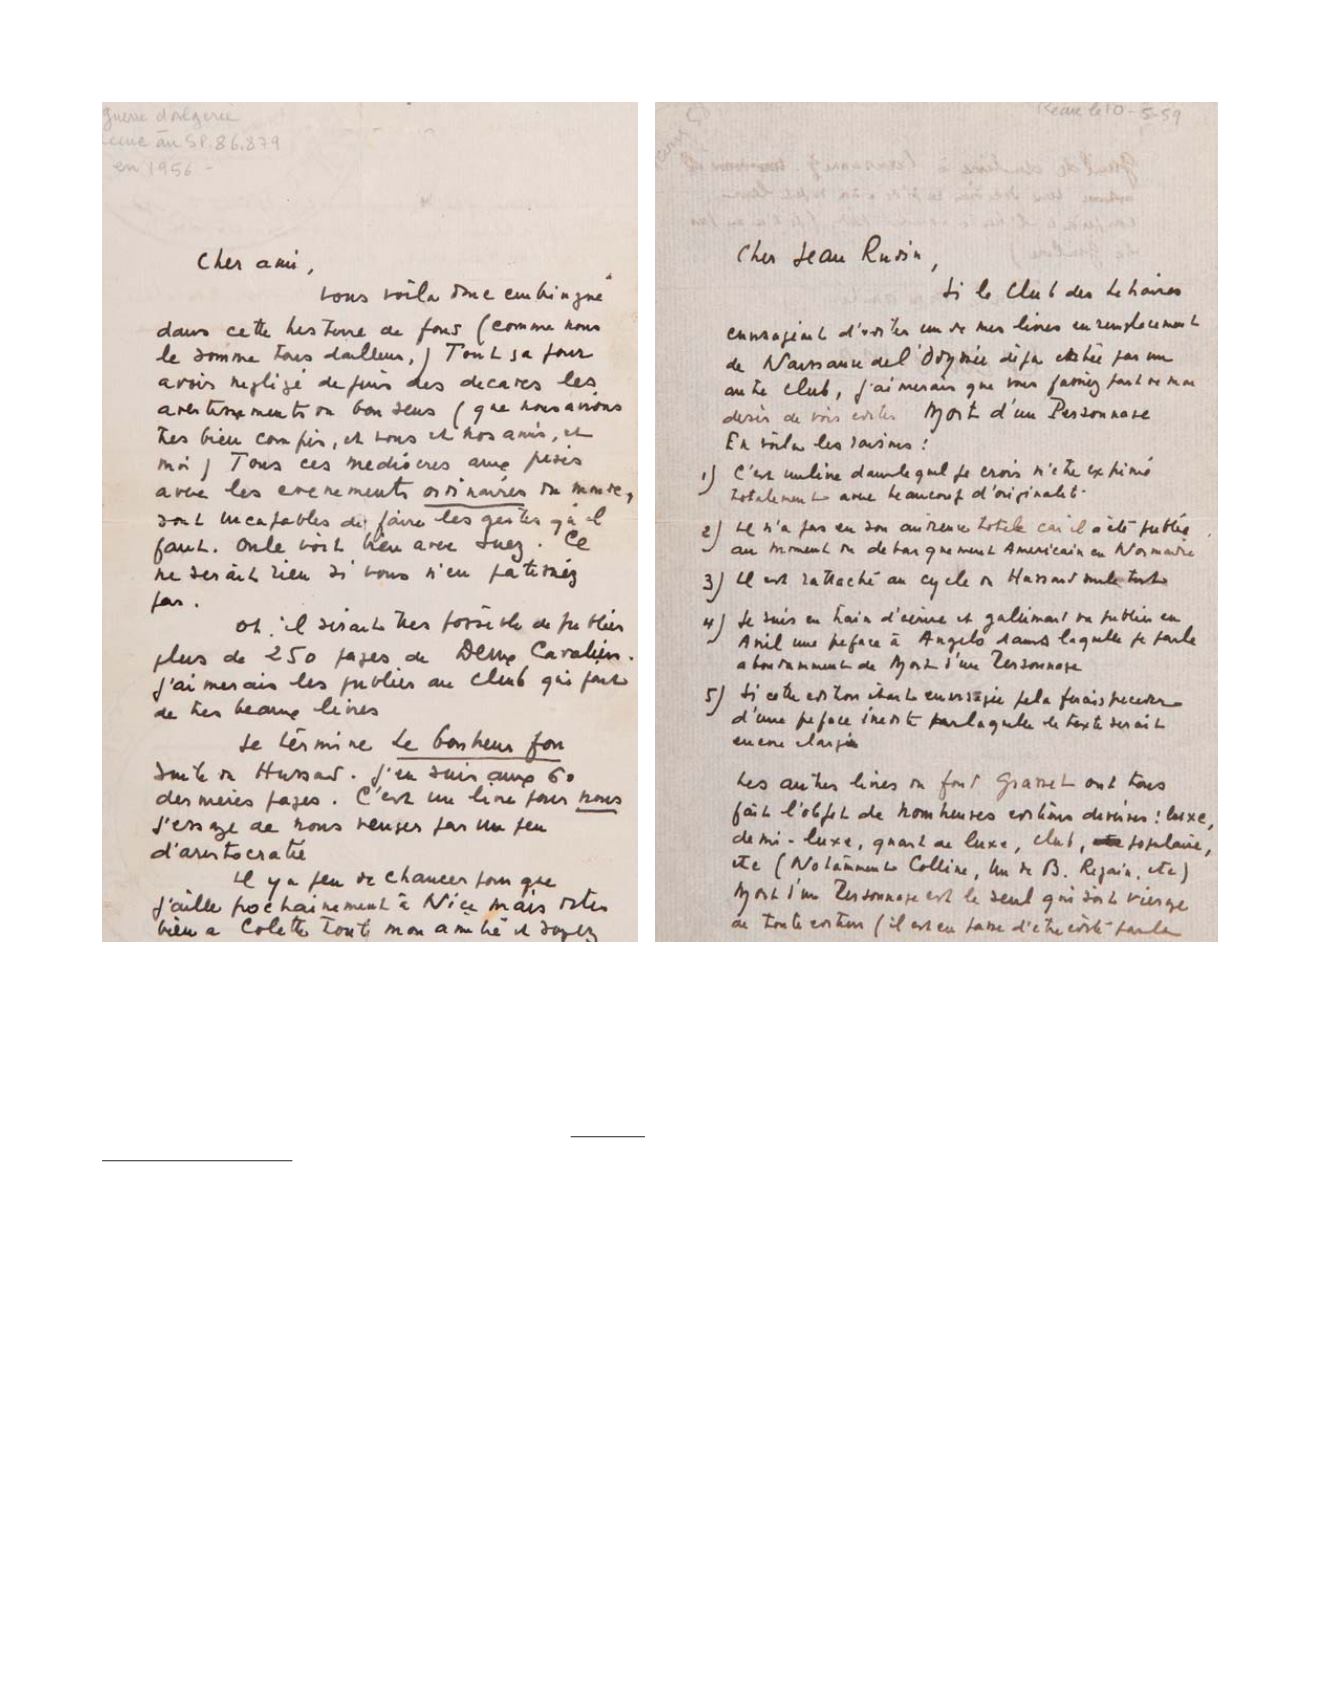 guerre d'Algerie
au SP.86.879
en 1956 -
Cher ami,
vous voila donc embringué
dans cette histoire de fous (comme nous
le somme tous dailleur,) Tout sa pour
avoir negligé depuis des decades les
avertissements du bon sens (que nous avions
tres bien compris, et vous et nos amis, et
moi) Tous ces mediocres aux prises
avec les evenements ordinaires du monde,
sont incapables de faire les gestes qu'il
faut. On le voit bien avec Suez. Ce
ne serait rien si vous n'en patissiez
pas.
il serait tres possible de publier
plus de 250 pages de Deux Cavaliers.
J'aimerais les publier au club qui fait
de tres beaux livres
Je termine Le bonheur fou
suite du Hussard. J'en suis aux 60
dernieres pages. C'est un livre pour nous
J'essaye de nous venger par un peu
d'aristocratie
Il y a peu de chances pour que
j'aille prochainement à Nice mais dites
bien a Colette toute mon amitié et soyez
le 10-5-59
Cher Jean
Si le Club des Libraires
envisageait d'editer un de mes livres en remplacement
de Naissance de l'Odyssée deja editée par un
autre club, j'aimerais que vous fassiez part de mon
desir de voir editer Mort d'un Personnage
En voila les raisons :
1) C'est un livre dans lequel je crois m'etre exprimé
totalement avec beaucoup d'originalité.
2) Il n'a pas eu son audience totale car il a été publié
au moment du debarquement Americain en Normandie
3) Il est rattaché au cycle du Hussard sur le toit
4) Je suis en train d'écrire et gallimard va publier en
Avril une preface à Angelo dans laquelle je parle
abondamment de Mort d'un Personnage
5) Si cette edition était envisagée je la ferais preceder
d'une preface inedite par laquelle le texte serait
encore elargi
Les autres livres du fond Grasset ont tous
fait l'objet de nombreuses editions diverses : luxe,
demi-luxe, quart de luxe, club, populaire,
etc (Notamment Colline, Un de B. Regain, etc)
Mort d'un Personnage est le seul qui soit vierge
de toute edition (il est en passe d'etre édité par la